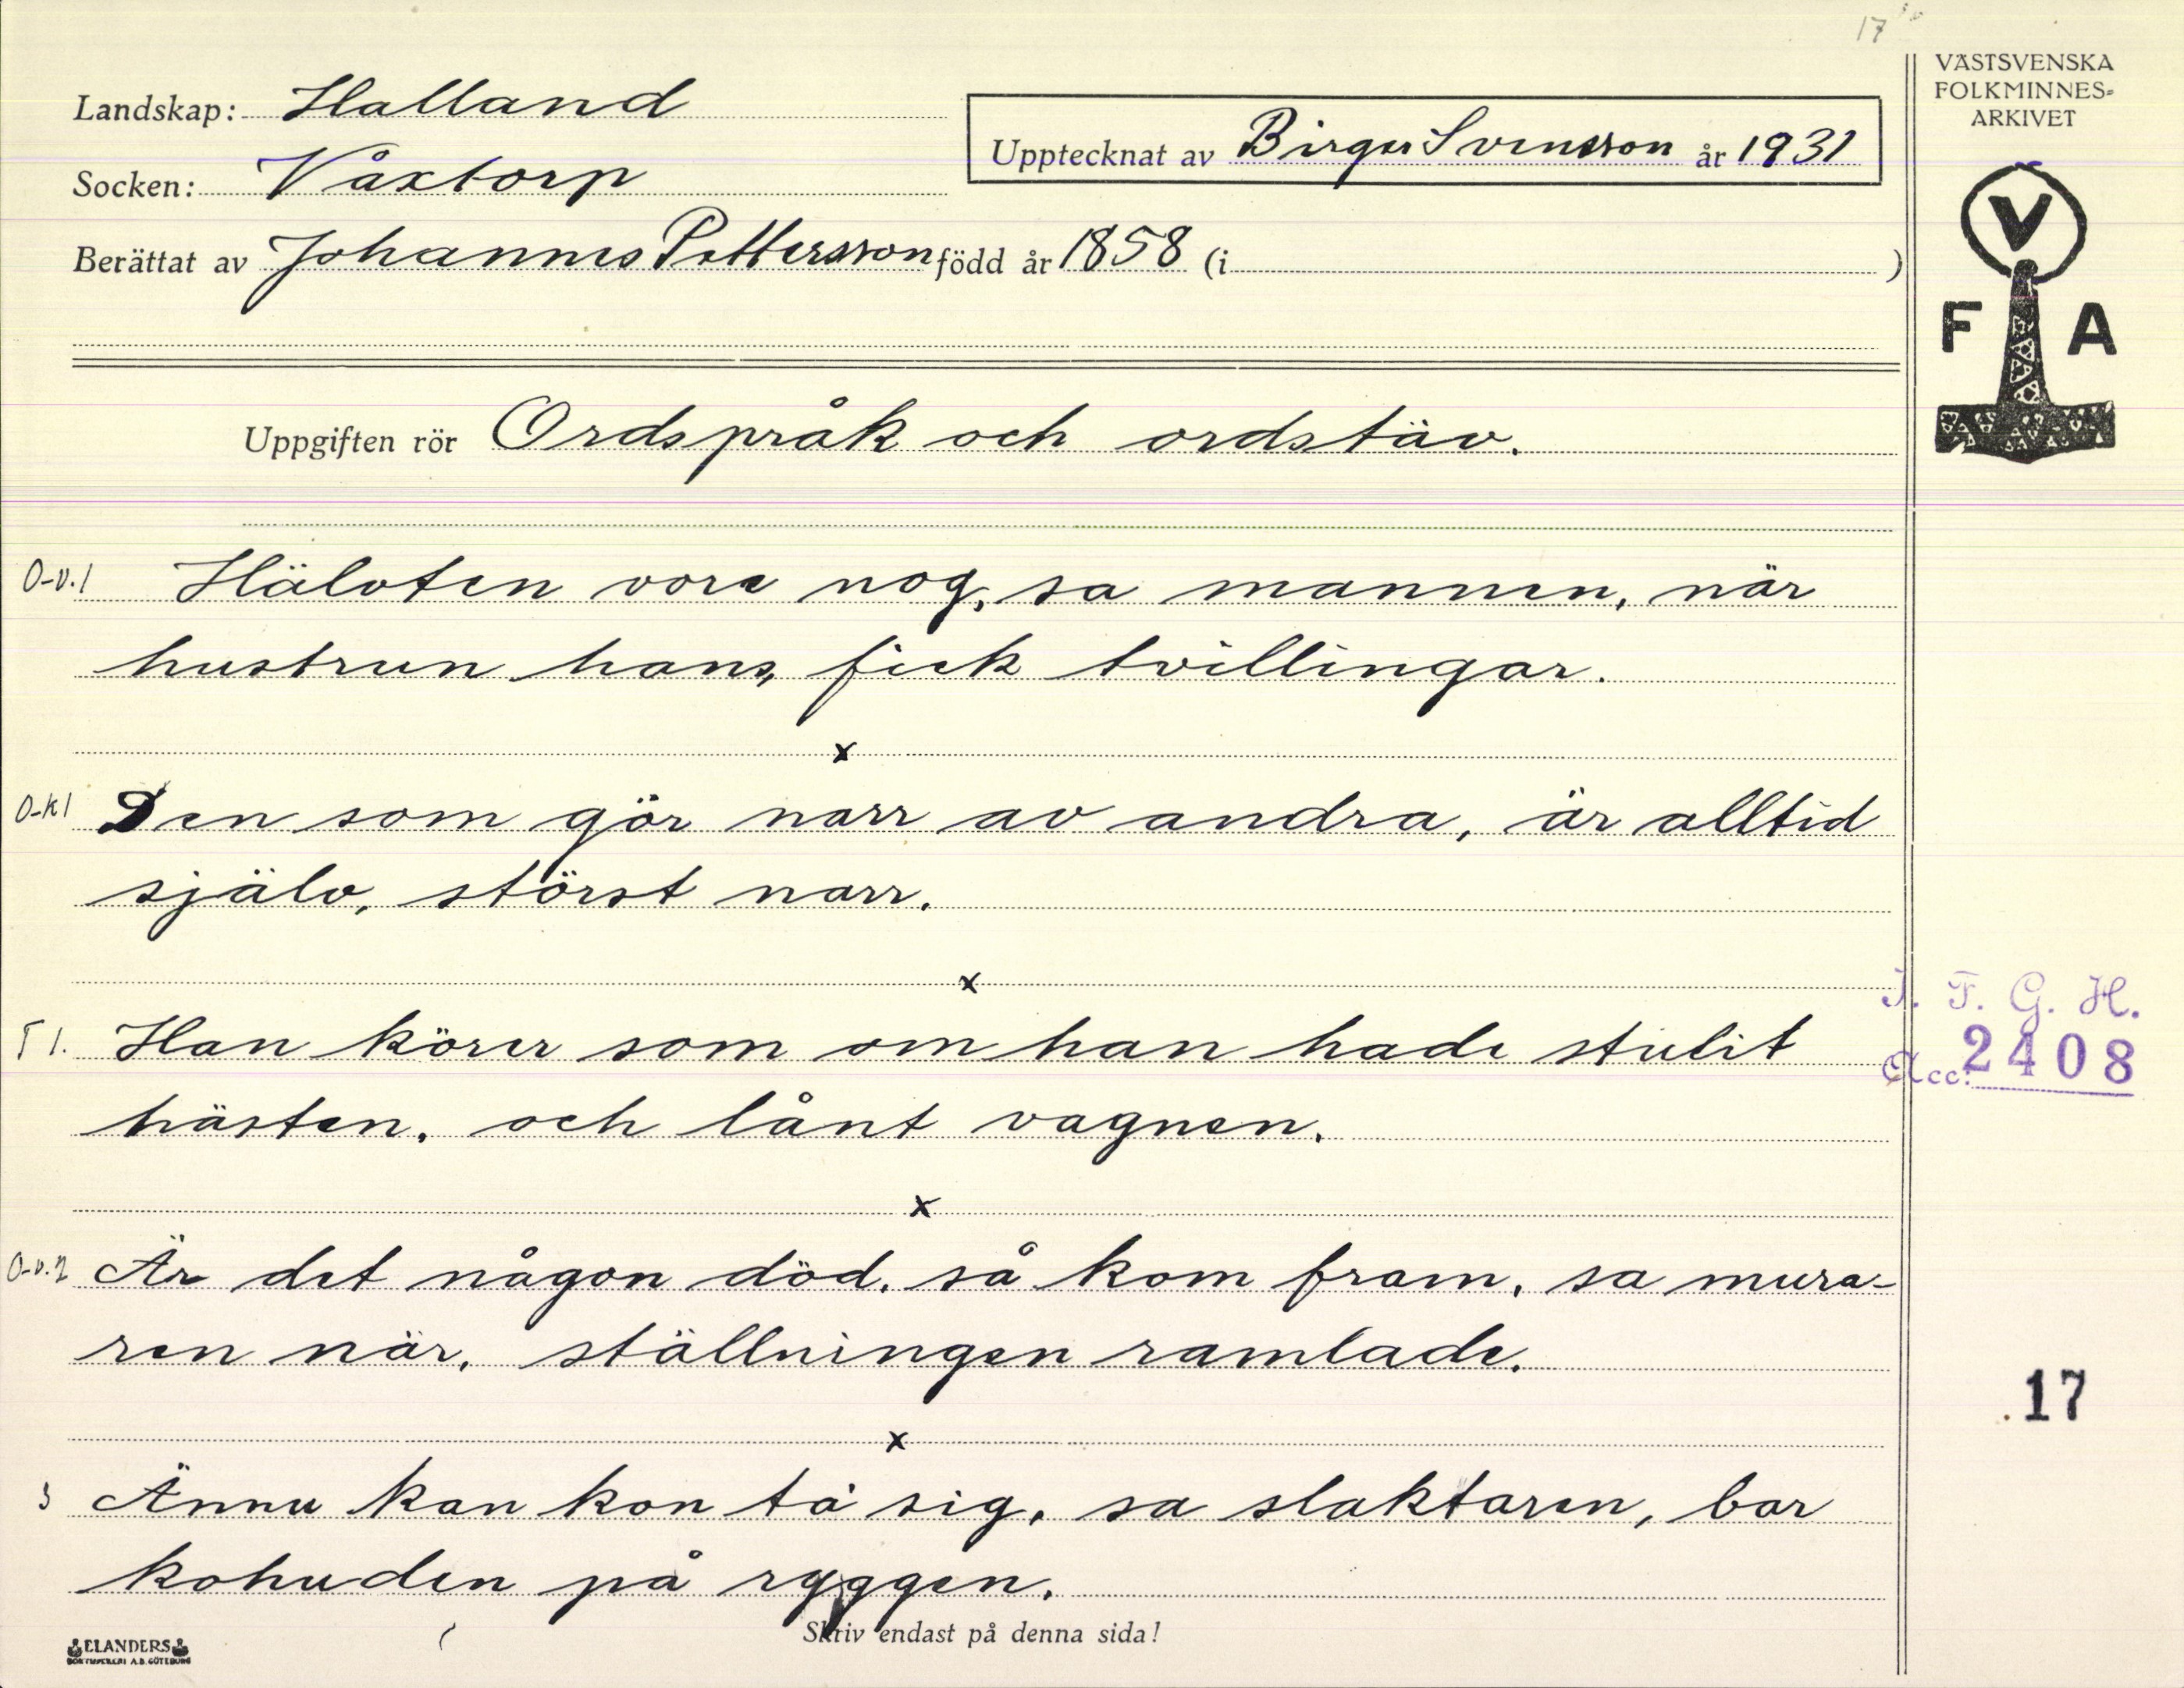 17
VÄSTSVENSKA
FOLKMINNES-
ARKIVET
Landskap: Halland
Upptecknat av Birger Svensson år 1931
Socken: Våxtorp
Berättat av Johannes Pettersson född år 1858 (i )
V
F A
Uppgiften rör Ordspråk och ordstäv.
O-v.1 Hälvten vore nog, sa mannen, när
hustrun hans, fick tvillingar.
x
O-k1 Den som gör narr av andra, är alltid
själv, störst narr.
x
T 1. Han körer som om han hade stulit
hästen, och lånt vagnen.
x
O-v.2 Är det någon död, så kom fram, sa mura-
ren när, ställningen ramlade.
x
3 Ännu kan kon ta sig, sa slaktaren, bar
kohuden på ryggen.
I. F. G. H.
Acc: 2408
17
Skriv endast på denna sida!
ELANDERS
BOKTRYCKERI A.B. GÖTEBORG